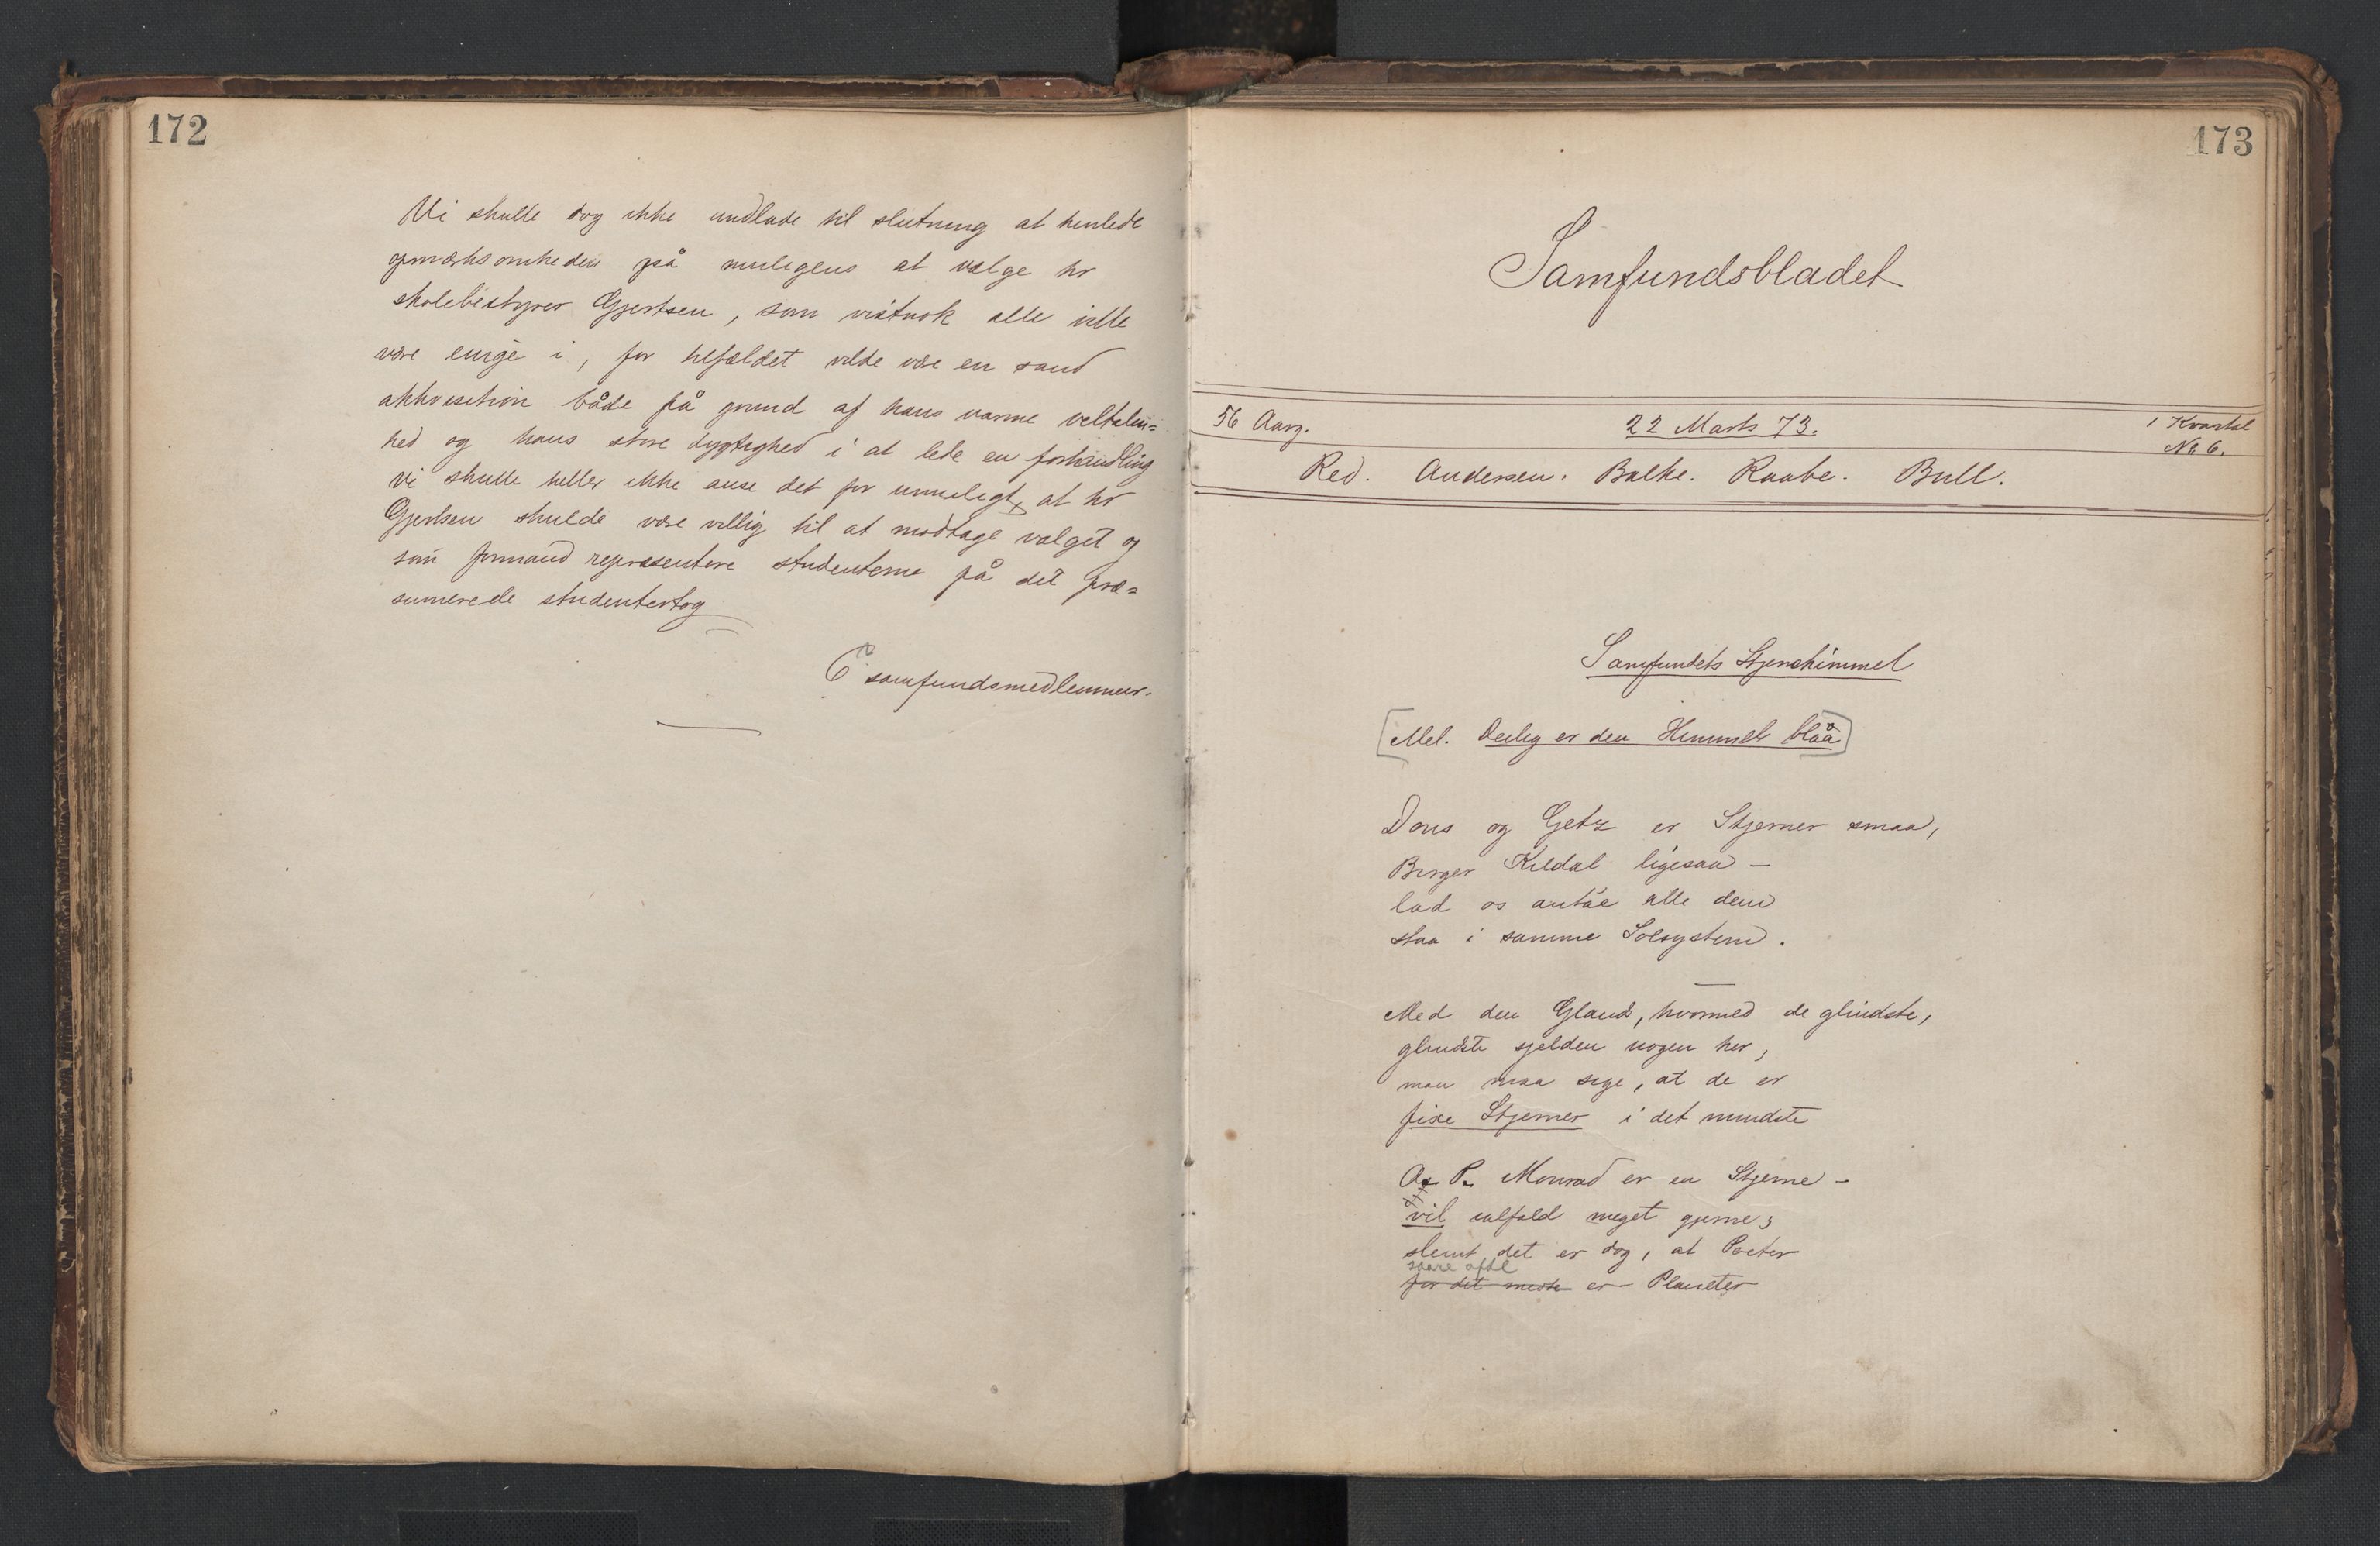 172
Vi skulle dog ikke undlade til slutning at henlede
opmærksomheden på muligens at vælge hr
skolebestyrer Gjertsen, som vistnok alle ville
være enige i, for tilfældet vilde være en sand
akkvisition både på grund af hans varme veltalen=
hed og hans store dygtighed i at lede en forhandling
vi skulle heller ikke anse det for umuligt, at hr
Gjertsen skulde være villig til at modtage valget og
som formand repræsentere studenterne på det præ=
sumerede studentertog
6 samfundsmedlemmer.
173
Samfundsbladet
56 Aarg. 22 Marts 73. 1 Kvartal
No 6.
Red. Andersen. Balke. Raabe. Bull.
Samfundets Stjernehimmel
[Mel. Deilig er den Himmel blaa]
Dons og Getz er Stjerner smaa,
Birger Kildal ligesaa –
lad os antæ alle dem
staa i samme Solsystem.
Med den Glands, hvormed de glindste,
glindste sjelden nogen her;
man maa sige, at de er
fixe Stjerner i det mindste
A. P. Monrad er en Stjerne –
vil ialfald meget gjerne;
slemt det er dog, at Poeter
svære ofte
for det meste er Planeter